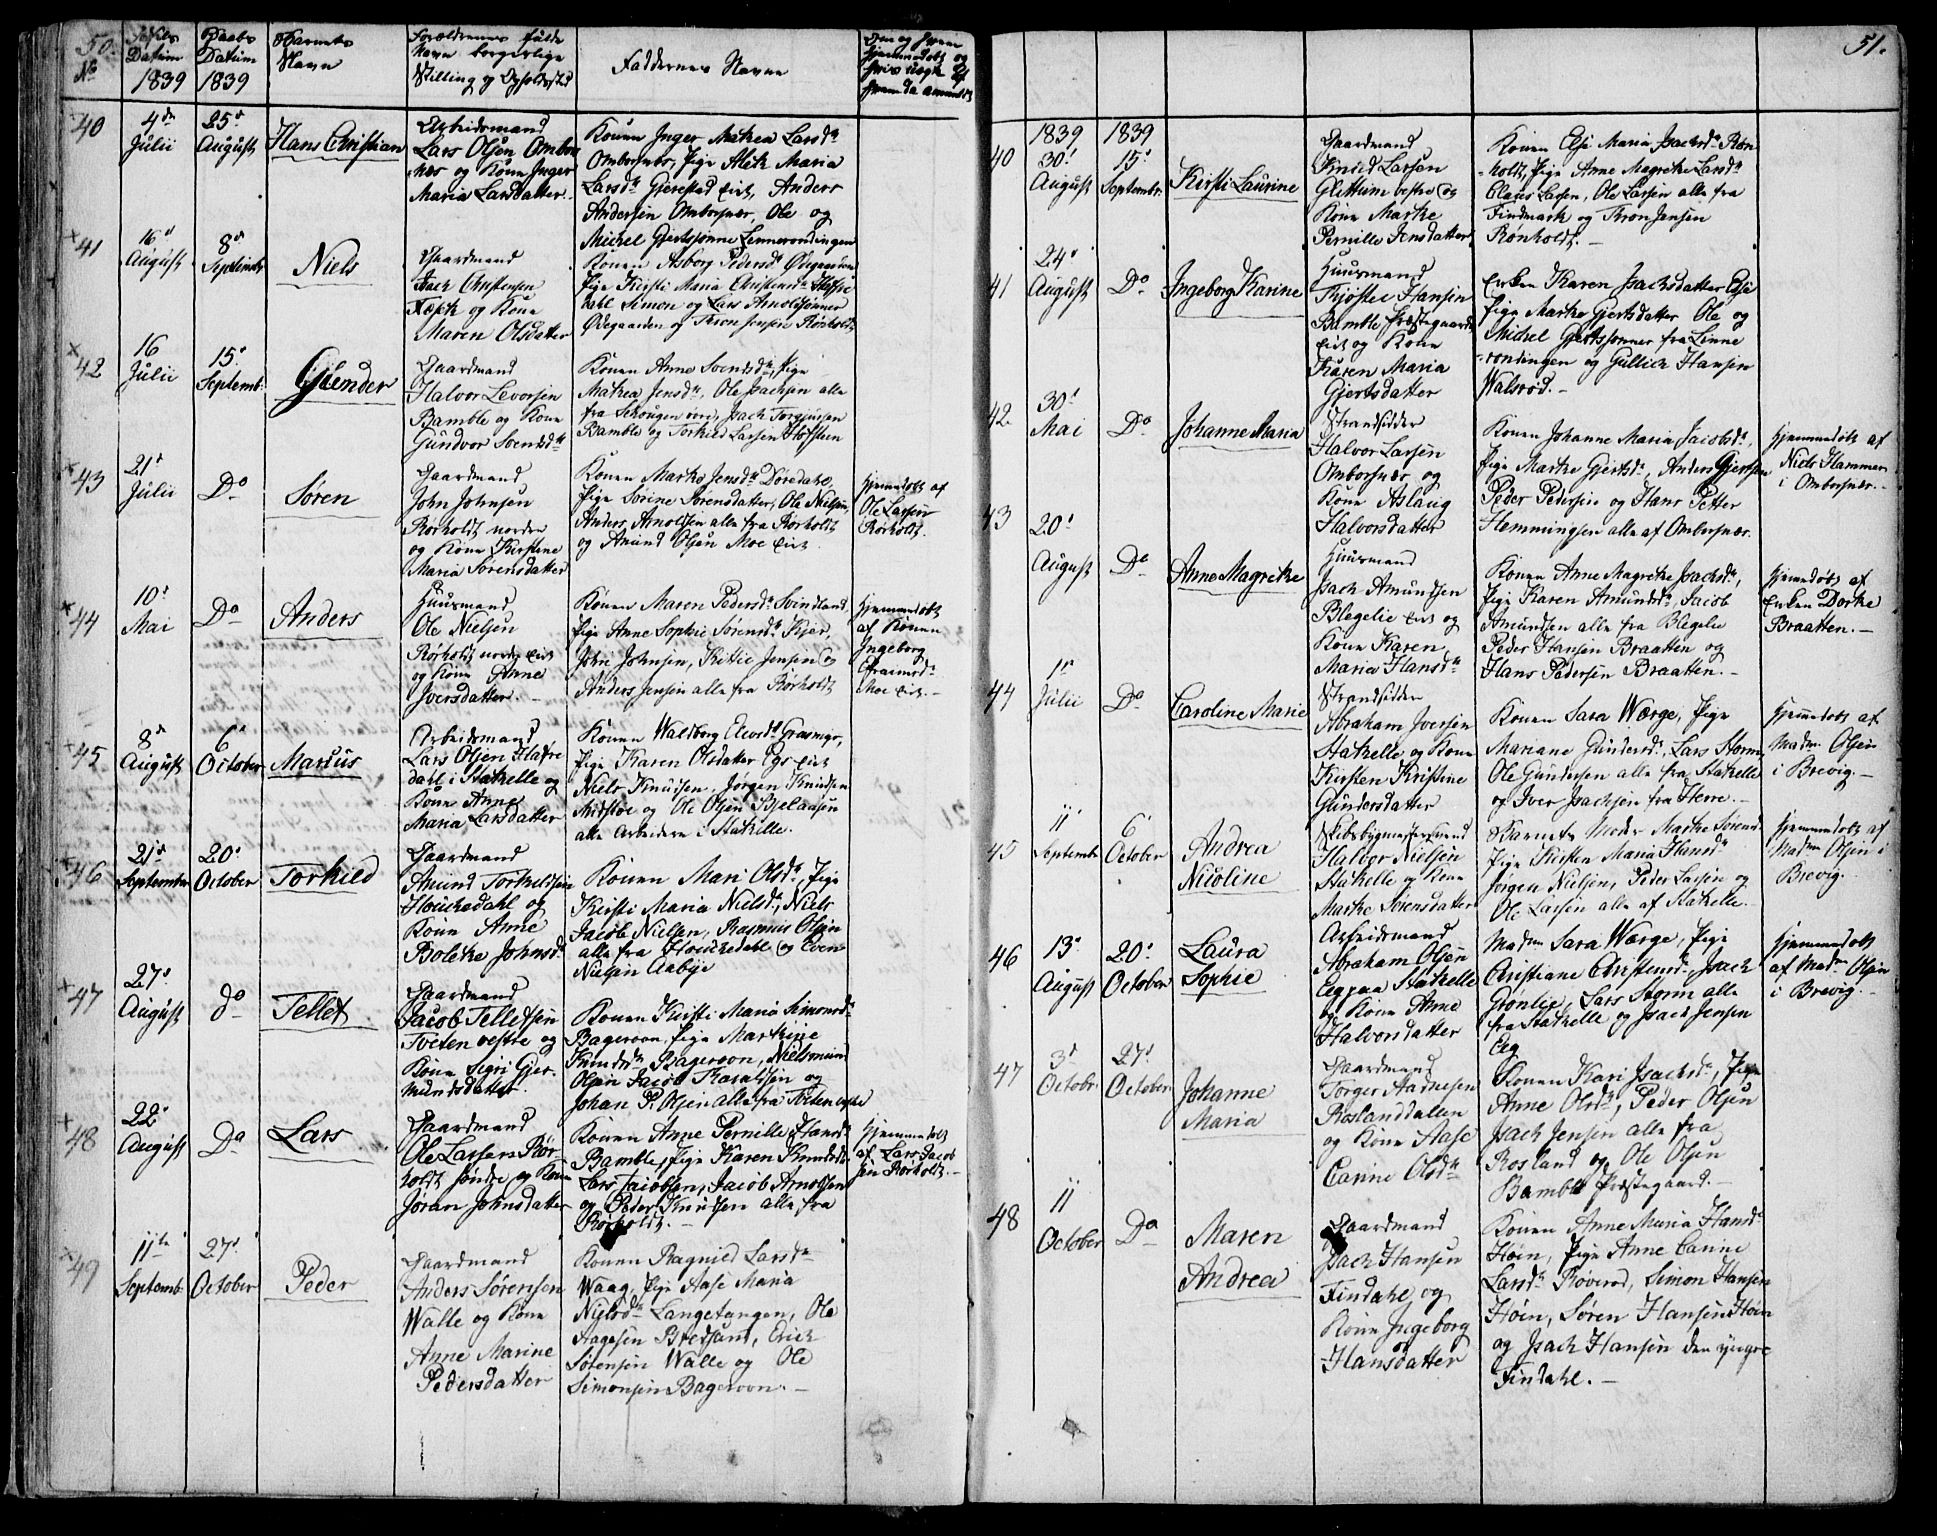 50.
No
Fødsels
Datum
1839
Daabs
Datum
1839
Barnets
Navn
Forældrenes fulde
Navn borgerlige
Stilling og Opholdssted
Faddernes Navne
40
4de
Julii
25d
August
Hans Christian
Arbeidsmand
Lars Olsen Ombors
nes og Kone Inger
Maria Larsdatter
Konen Inger Mathea Larsdr
Omborsnes, Pige Maria
Larsdr Gjerestad Eiet, Anders
Andersen Omborsnær, Ole og
Michel Gjertsønne Linnerondingen
41
16d
August
8d
Septembr
Niels
Gaardmand
Isach Christensen
og Kone
Maren Olsdatter
Konen Asborg Pedersd Ødegaarden
Pige Kirsti Maria Christensdr
Simon og Lars Arnoldsønner
Ødegaarden og Tron Jensen Rørholdt
42
16
Julii
15d
Septemb.
Gjænder
Gaardmand
Halvor Levorsen
Bamble og Kone
Gundvor Svendsdr
Konen Anne Svendsdr, Pige
Mathea Jensdr, Ole Isachsen alle
fra Schougen øvre, Isach Torgjusen
Bamble og Torkild Larsen Hafsteen
43
21d
Julii
Do
Søren
Gaardmand
John Johnsen
Rørholdt nordre
og Kone Kirstine
Maria Sørensdatter
Konen Marthe Jensdr Dørdahl,
Pige Sørine Sørensdatter, Ole Nielsen,
Anders Arnoldsen alle fra Rørholdt
og Amund Olsen Moe Eiet.
hjemmedøbt af
Ole Larsen
Rørholdt.
44
10d
Mai
Do
Anders
Huusmand
Ole Nielsen
Rørholdt nordre Eiet
og Kone Anne
Iversdatter.
Konen Maren Pedersdr Svindland,
Pige Anne Sophie Sørensdr Kjær,
John Johnsen, Kittil Jensen og
Anders Jensen alle fra Rørholdt
hjemmedøbt
af Konen
Ingeborg
Efraimsdr
Moe Eiet.
45
8d
August
6d
October
Marius
Arbeidsmand
Lars Olsen Hafre
dahl i Stathelle og
Kone Anne
Maria Larsdatter
Konen Walborg Elevsdr Grasmyr,
Pige Karen Olsdatter Eeg Eiet
Niels Knudsen, Jørgen Knudsen
Midstøe og Ole Olsen Bjelaasen
alle Arbeidere i Stathelle.
46
21d
September
20d
October
Torkild
Gaardmand
Amund Torkildsen
Houckedahl og
Kone Anne
Bolethe Johnsdr
Konen Mari Olsdr, Pige
Kirsti Maria Nielsdr, Niels
Jacob Nielsen, Rasmus Olsen
alle fra Houckedahl og Even
Nielsen Aabye
47
27d
August
do
Tellef
Gaardmand
Jacob Tellefsen
Tveten vestre og
Kone Sigri Gjer-
mundsdatter
Konen Kirsti Maria Simonsdr
Bagerovn, Pige Marthine
Knudsdr Bagerovn, Nielsmund
Olsen Jacob Haraldsen og
Johan P. Olsen alle fra Tveten vestre
48
22d
August
Do
Lars
Gaardmand
Ole Larsen Rør-
holdt søndre og Kone
Jøran Johnsdatter
Konen Anne Pernille Hansdr
Bamble, Pige Karen Knudsdr
Lars Jacobsen, Jacob Arnoldsen
og Peder Knudsen alle fra
Rørholdt.
hjemmedøbt
af Lars Jacob
sen Rørholdt.
49
11te
Septemb.
27d
October
Peder
Gaardmand
Anders Sørensen
Walle og Kone
Anne Marine
Pedersdatter
Konen Ragnild Larsdr
Waag, Pige Aase Maria
Nielsdr Langetangen, Ole
Aagesen Bredsand, Erich
Sørensen Walle og Ole
Simonsen Bagerovn.
51.
1839
1839
40
30d
August
15d
Septembr.
Kirsti Laurine
Gaardmand
Knud Larsen
Glittum vestre og
Kone Marthe
Pernille Jensdatter
Konen Elsi Maria Isachsdr Rør-
holdt, Pige Anne Magrethe Larsdr
Claus Larsen, Ole Larsen alle fra
Findmark og Tron Jensen
Rørholdt.
41
24d
August
Do
Ingeborg Karine
Huusmand
Thjøstel Hansen
Bamble Præstegaards
Eiet og Kone
Karen Maria
Gjertsdatter
Enken Karen Isachsdatter
Pige Marthe Gjertsdatter Ole og
Michel Gjertsønner fra Linne
rondingen og Gullich Hansen
Walsrød.
42.
30d
Mai
Do
Johanne Maria
Strandsidder
Halvor Larsen
Omborsnær og
Kone Aslaug
Halvorsdatter
Konen Johanne Maria Jacobsdr,
Pige Marthe Gjertsdr, Anders Gjertsen
Peder Pedersen og Hans Petter
Hemmingsen alle af Omborsnær.
hjemmedøbt af
Niels Hammer
i Omborsnær.
43
20d
August
Do
Anne Magrethe
Huusmand
Isach Amundsen
Blegelie Eiet og
Kone Karen
Maria Hansdr
Konen Anne Magrethe Isachsdr,
Pige Karen Amundsdr, Jacob
Amundsen alle fra Blegelie
Peder Hansen Braatten og
Hans Pedersen Braatten.
hjemmedøbt af
Enken Dorthe
Braatten.
44
1d
Julii
Do
Caroline Marie
Strandsidder
Abraham Iversen
Stathelle og Kone
Kirsten Kristine
Gundersdatter
Konen Sara Wærge, Pige
Mariane Gundersdr, Lars Storm
Ole Gundersen alle fra Stathelle
og Iver Isachsen fra Herre.
hjemmedøbt af
Madm Olsen
i Brevig.
45
11
Septembr
6
October
Andrea
Nicoline
Skibsbygmestersvend
Halvor Nielsen
Stathelle og Kone
Marthe Sørensdatter
Barnets Moder Marthe Sørensd
Pige Kirsten Maria Hansdr
Jørgen Nielsen, Peder Larsen og
Ole Larsen alle af Stathelle.
hjemmedøbt af
Madm Olsen i
Brevig.
46
13d
August
20d
October
Laura
Sophie
Arbeidsmand
Abraham Olsen
Stathelle
og Kone Anne
Halvorsdatter
Madm Sara Wærge, Pige
Christiane Christensdr, Isach
Grønlie, Lars Storm alle
fra Stathelle og Isach Jensen
Eeg
hjemmedøbt
af Madm Olsen
i Brevig.
47
3d
Octobr.
27d
October
Johanne
Maria
Gaardmand
Torger Aadnesen
Roslanddalen
og Kone Aase
Carine Olsdr
Konen Kari Isachsdr, Pige
Anne Olsdr, Peder Olsen
Isach Jensen alle fra
Rosland og Ole Olsen
Bamble Præstegaard.
48
11
October
Do
Maren
Andrea
Gaardmand
Isach Hansen
Findahl og
Kone Ingeborg
Hansdatter
Konen Anne Maria Hansdr
Høin, Pige Anne Carine
Larsdr Røverod, Simon Hansen
Høin, Søren Hansen Høin
og Isach Hansen den yngre
Findahl.